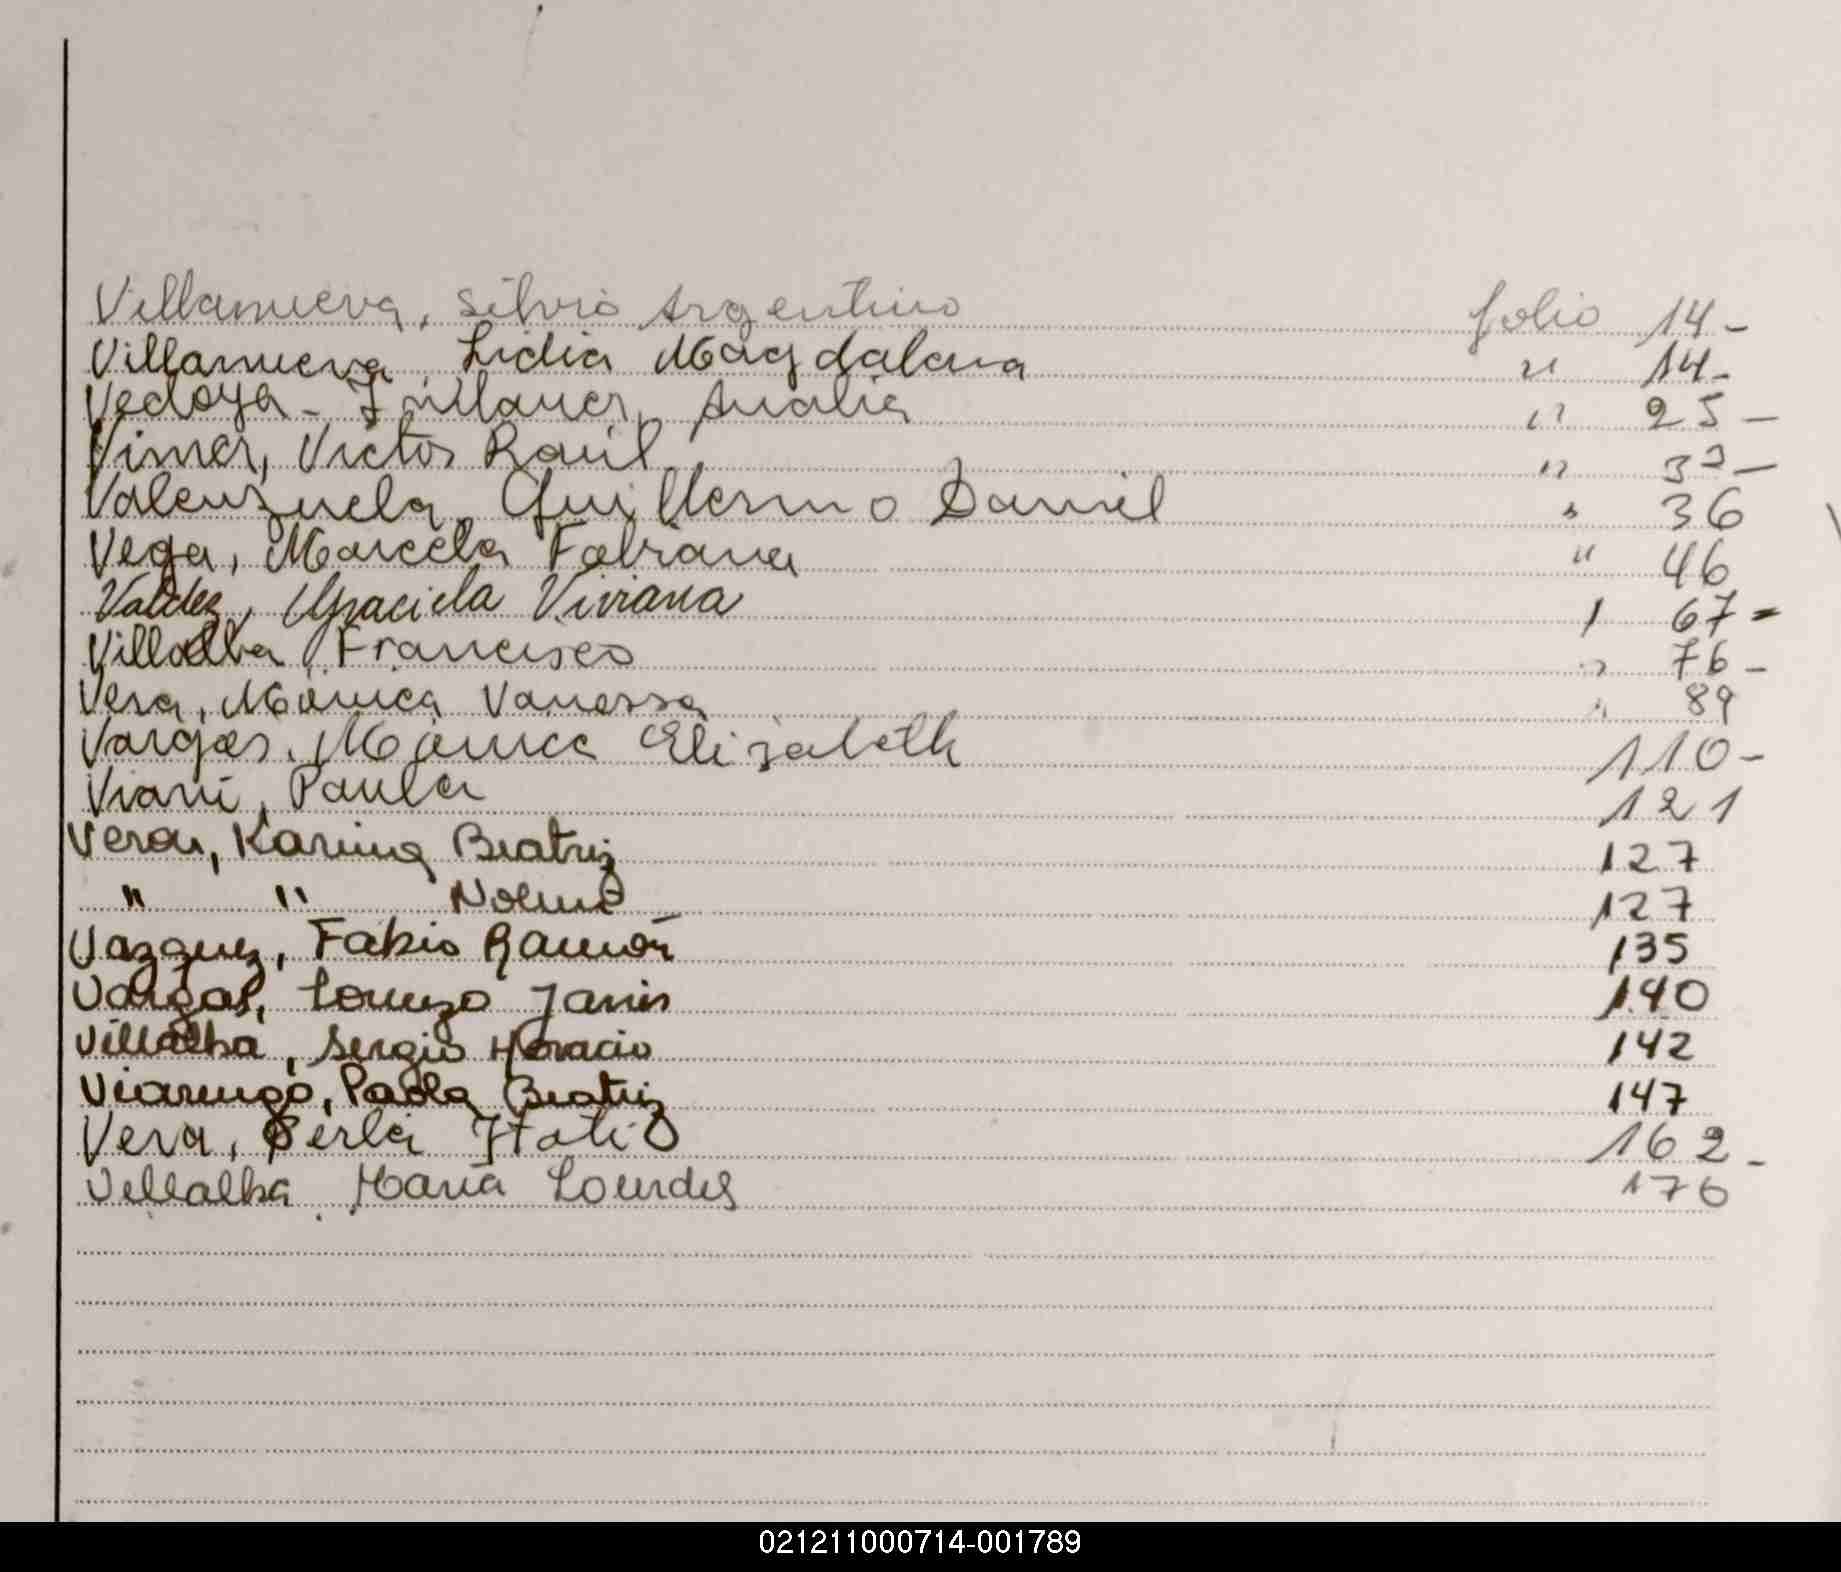 Villanueva, Silvio Argentino folio 14-
Villanueva, Lidia Magdalena " 14-
Vedoya - Analia " 25-
Victor Raúl " -
Valenzuela, Guillermo Daniel " 36
Vega, Marcela Fabiana " 46
Valdez, Graciela Viviana " 67-
Villalba, Francisco " 76-
Vera, Mónica Vanessa " 89
Vargas, Mónica Elizabeth 110-
Viani, Paula 121
Vera, Karina Beatriz 127
" " Noemi 127
Vazquez, Fabio Ramón 135
Vargas, Lorenzo 140
Villalba, Sergio Horacio 142
Viarengo, Paola Beatriz 147
Vera, Perla Itati 162-
Villalba María Lourdes 176
021211000714-001789